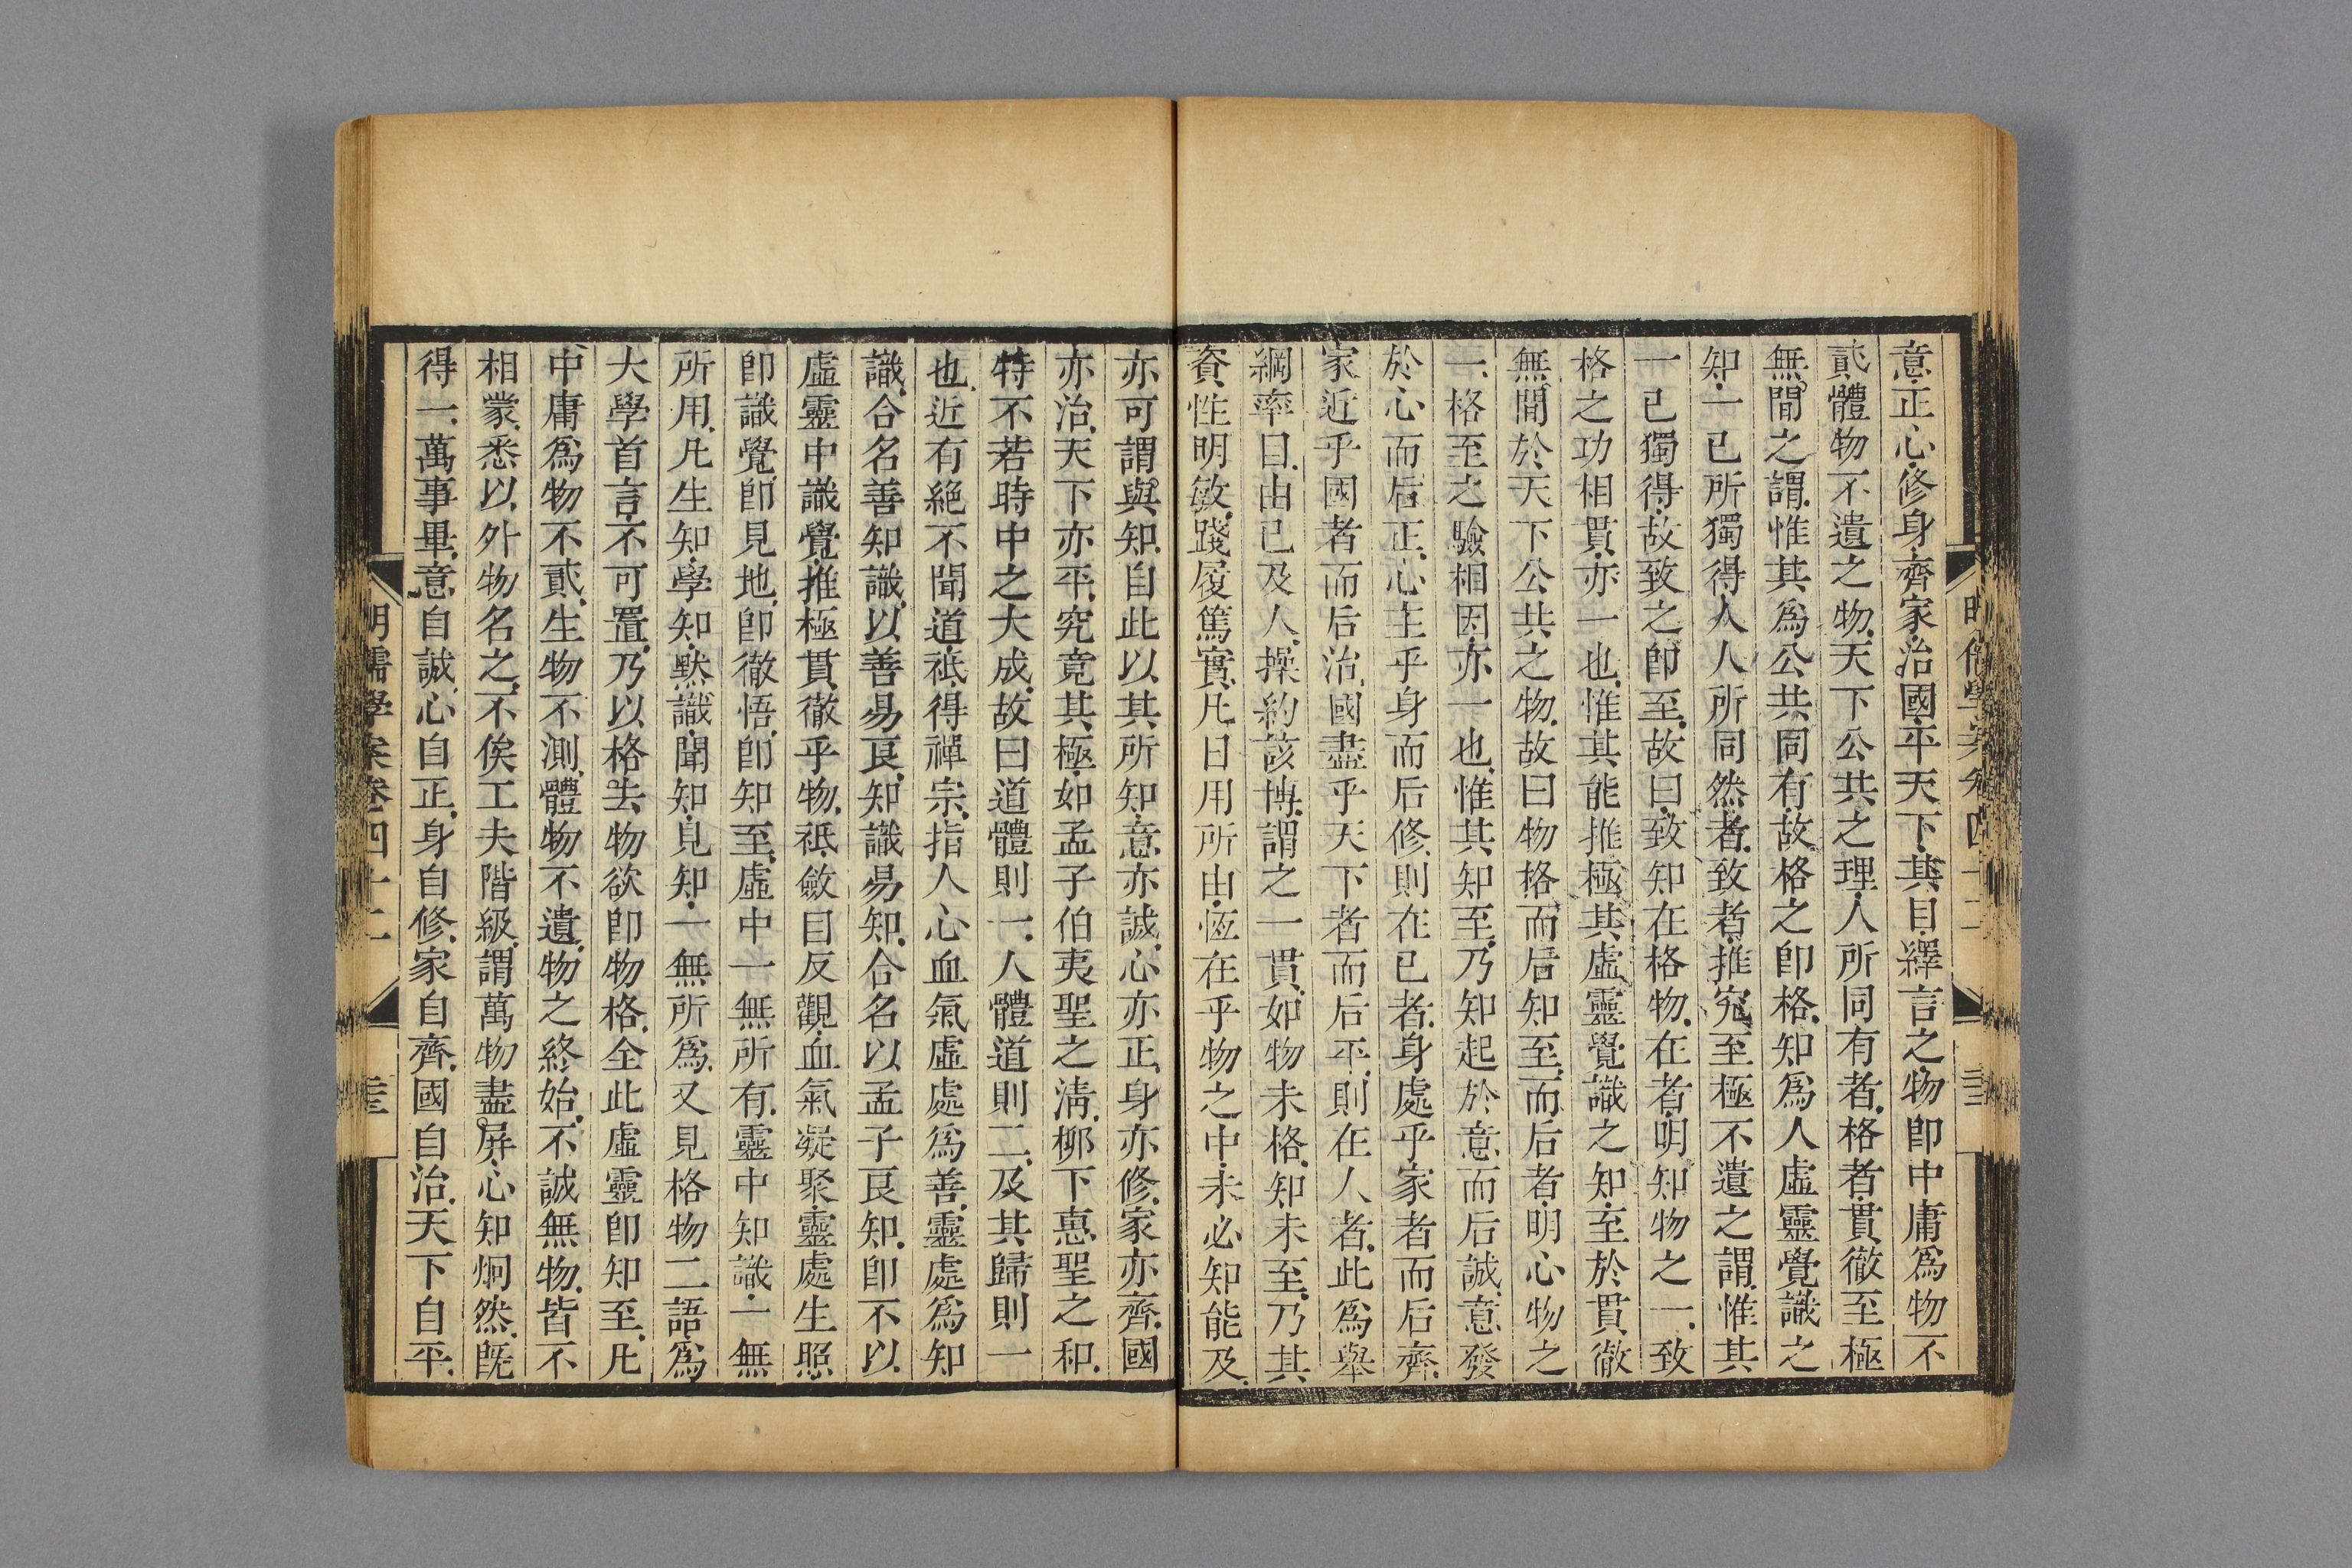 意正心修身齊家治國平天下其目繹言之物卽中庸爲物不
貳體物不遺之物天下公共之理人所同有者格者貫徹至極
無閒之謂惟其爲公共同有故格之卽格知爲人虛靈覺識之
知一已所獨得人人所同然者致者推究至極不遺之謂惟其
一已獨得故致之卽至故曰致知在格物在者明知物之一致
格之功相貫亦一也惟其能推極其虛靈覺識之知至於貫徹
無閒於天下公共之物故曰物格而后知至而后者明心物之
一格至之驗相因亦一也惟其知至乃知起於意而后誠意發
於心而后正心主乎身而后修則在已者身處乎家者而后齊
家近乎國者而后治國盡乎天下者而后平則在人者此爲舉
綱率目由已及人操約該博謂之一貫如物未格知未至乃其
資性明敏踐履篤實凡日用所由恆在乎物之中未必知能及
亦可謂與知自此以其所知意亦誠心亦正身亦修家亦齊國
亦治天下亦平究竟其極如孟子伯夷聖之淸柳下惠聖之和
特不若時中之大成故曰道體則一人體道則二及其歸則一
也近有絕不聞道祇得禪宗指人心血氣虛處爲善靈處爲知
識合名善知識以善易良知識易知合名以孟子良知卽不以
虛靈中識覺推極貫徹乎物祇斂目反觀血氣凝聚靈處生照
卽識覺卽見地卽徹悟卽知至虛中一無所有靈中知識一無
所用凡生知學知默識聞知見知一無所爲又見格物二語爲
大學首言不可置乃以格去物欲卽物格全此虛靈卽知至凡
中庸爲物不貳生物不測體物不遺物之終始不誠無物皆不
相蒙悉以外物名之不俟工夫階級謂萬物盡屏心知炯然旣
得一萬事畢意自誠心自正身自修家自齊國自治天下自平
明儒學案卷四十二